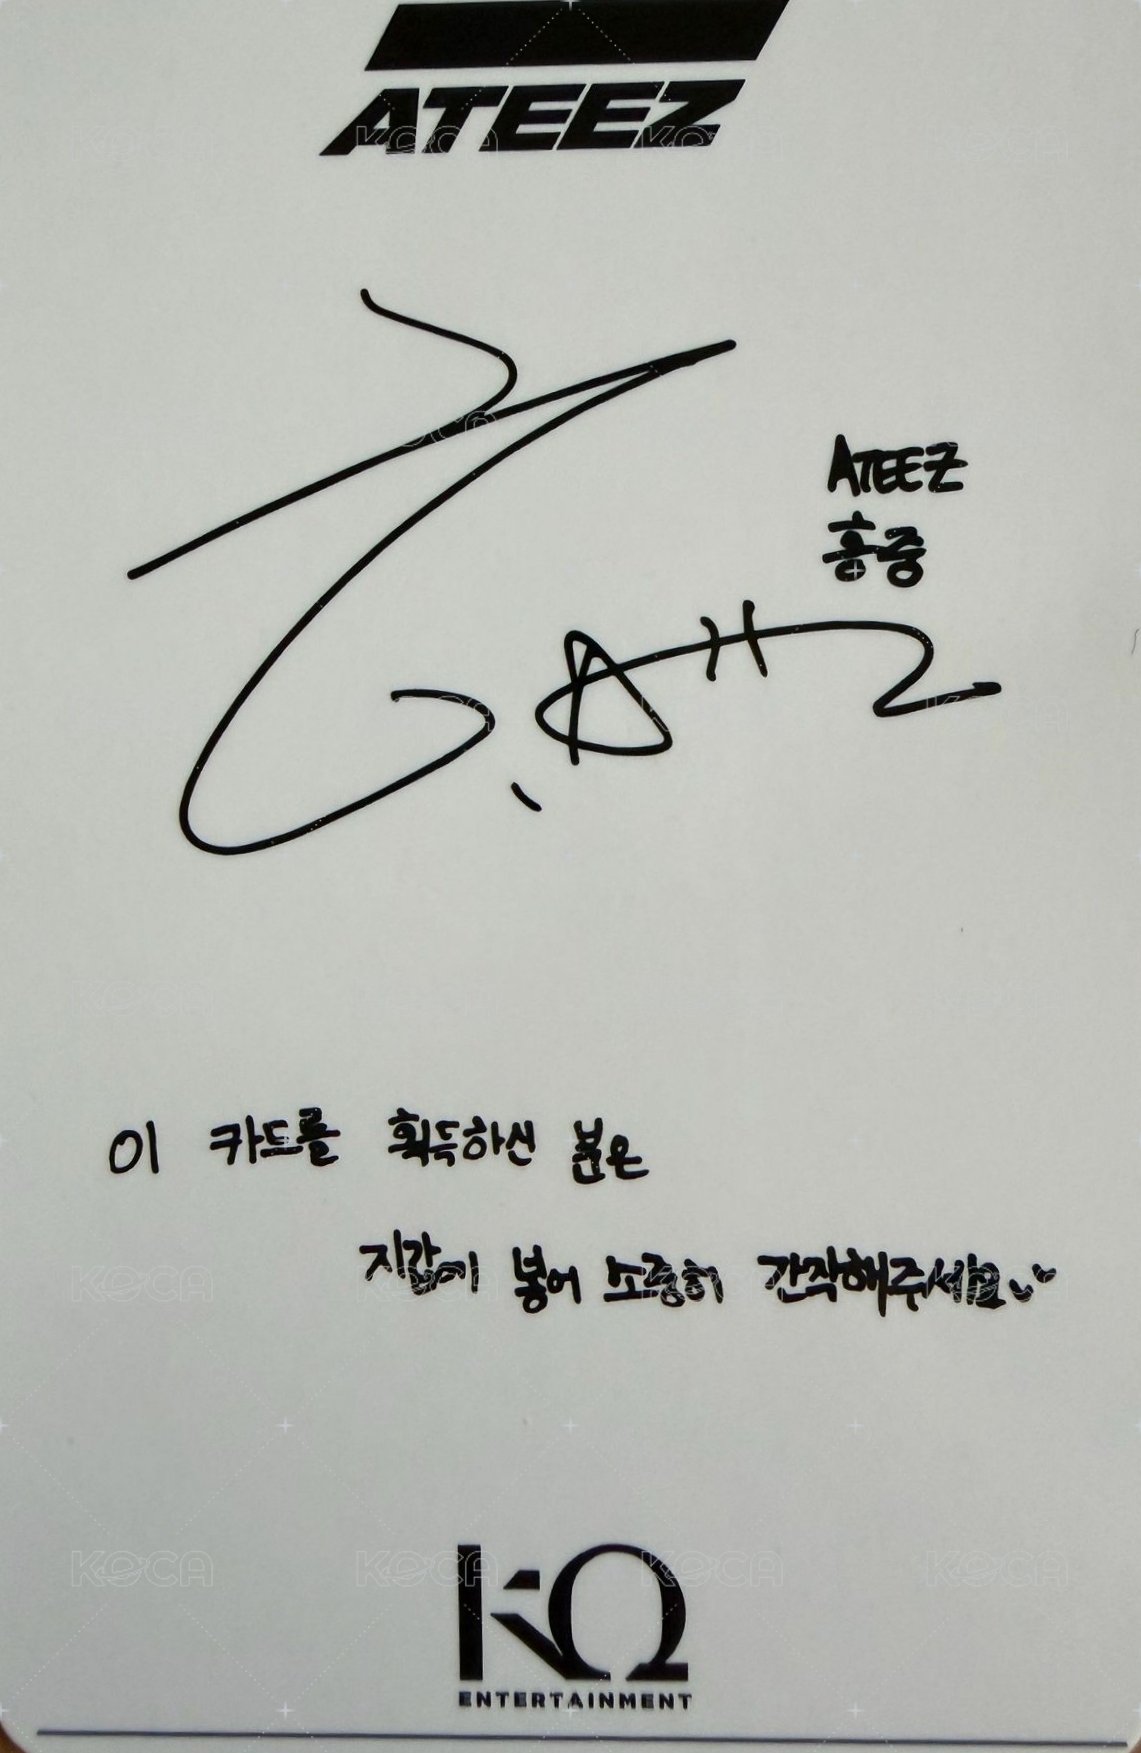 ATEEZ
ATEEZ
홍중
이 카드를 획득하신 분은
지갑에 넣어 소중히 간직해주세요
KQ
ENTERTAINMENT
KOCA